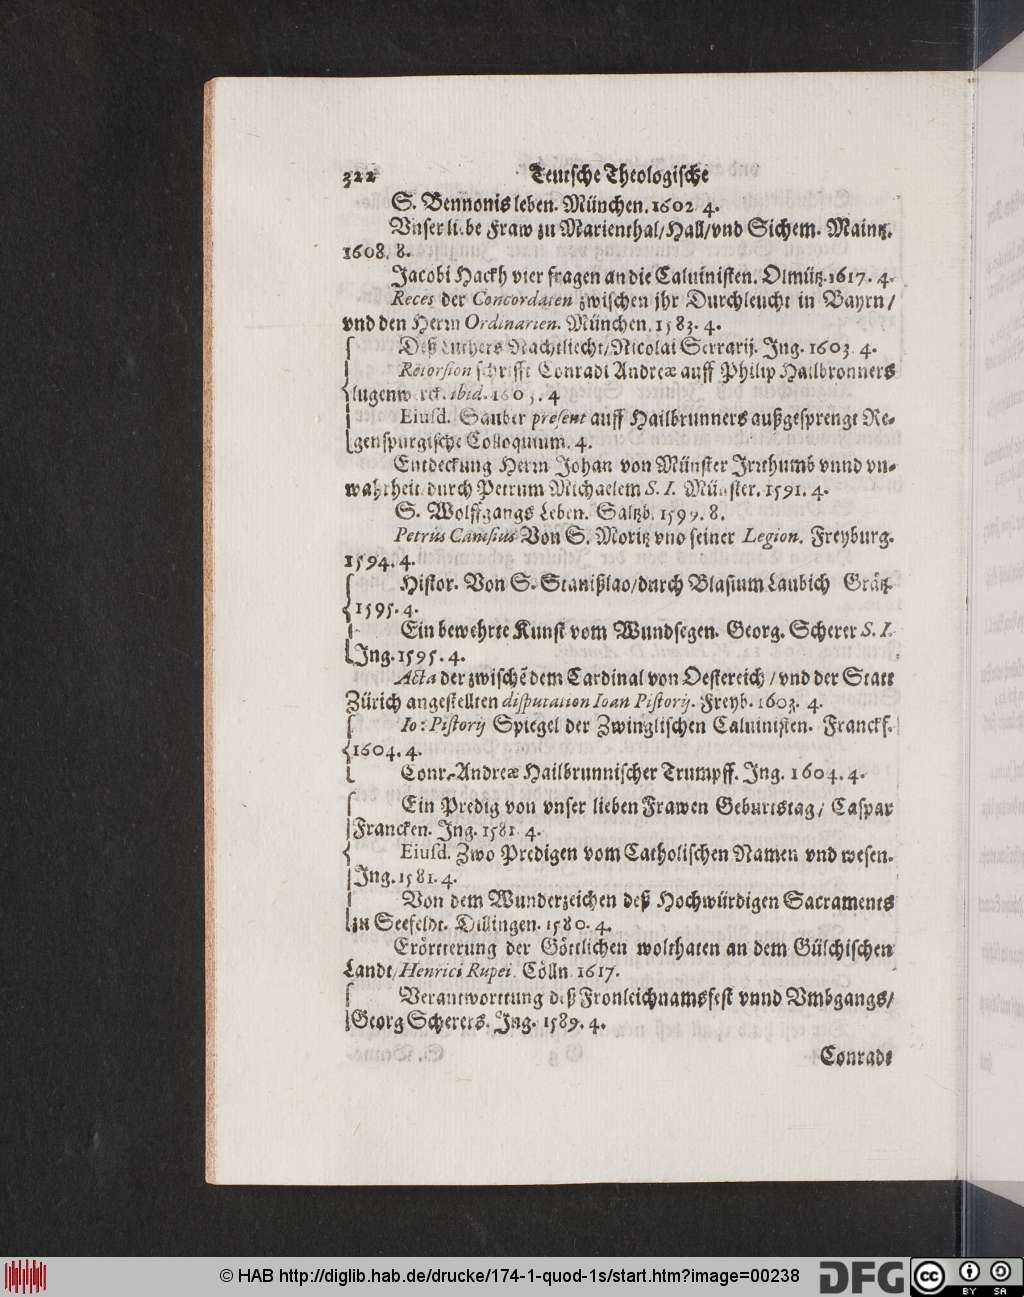 322 Teutsche Theologische
S. Bennonis leben. München. 1602. 4.
Vnser liebe Fraw zu Marienthal/Hall/vnd Sichem. Maintz.
1608. 8.
Jacobi Hackh vier fragen an die Caluinisten. Olmütz. 1617. 4.
Reces der Concordaten zwischen jhr Durchleucht in Bayrn/
vnd den Herrn Ordinarien. München. 1583. 4.
Deß Luthers Nachtliecht/Nicolai Serrarij. Ing. 1603. 4.
Retorsion schrifft Conradi Andreæ auff Philip Hailbronners
lugenwerck. ibid. 1603. 4
Eiusd. Sauber present auff Hailbrunners außgesprengt Re-
genspurgische Colloquium. 4.
Entdeckung Herrn Johan von Münster Irrthumb vnnd vn-
wahrheit/durch Petrum Michaelem S. I. Münster. 1591. 4.
S. Wolffgangs Leben. Saltzb. 1599. 8.
Petrus Canisius Von S. Moritz vnd seiner Legion. Freyburg.
1594. 4.
Histor. Von S. Stanißlao/durch Blasium Laubich Grätz.
1595. 4.
Ein bewehrte Kunst vom Wundsegen. Georg. Scherer S. I.
Ing. 1595. 4.
Acta der zwischē dem Cardinal von Oestereich/vnd der Statt
Zürich angestellten disputation Ioan Pistorij. Freyb. 1603. 4.
Io: Pistorij Spiegel der Zwinglischen Caluinisten. Franckf.
1604. 4.
Conr. Andreæ Hailbrunnischer Trumpff. Ing. 1604. 4.
Ein Predig von vnser lieben Frawen Geburtstag/ Caspar
Francken. Ing. 1581. 4.
Eiusd. Zwo Predigen vom Catholischen Namen vnd wesen.
Ing. 1581. 4.
Von dem Wunderzeichen deß Hochwürdigen Sacraments
zu Seefeldt. Dillingen. 1580. 4.
Erörtterung der Göttlichen wolthaten an dem Gülchischen
Landt/Henrici Rupei. Cölln. 1617.
Verantworttung deß Fronleichnamsfest vnnd Vmbgangs/
Georg Scherers. Ing. 1589. 4.
Conradi
© HAB http://diglib.hab.de/drucke/174-1-quod-1s/start.htm?image=00238
DFG
cc BY SA